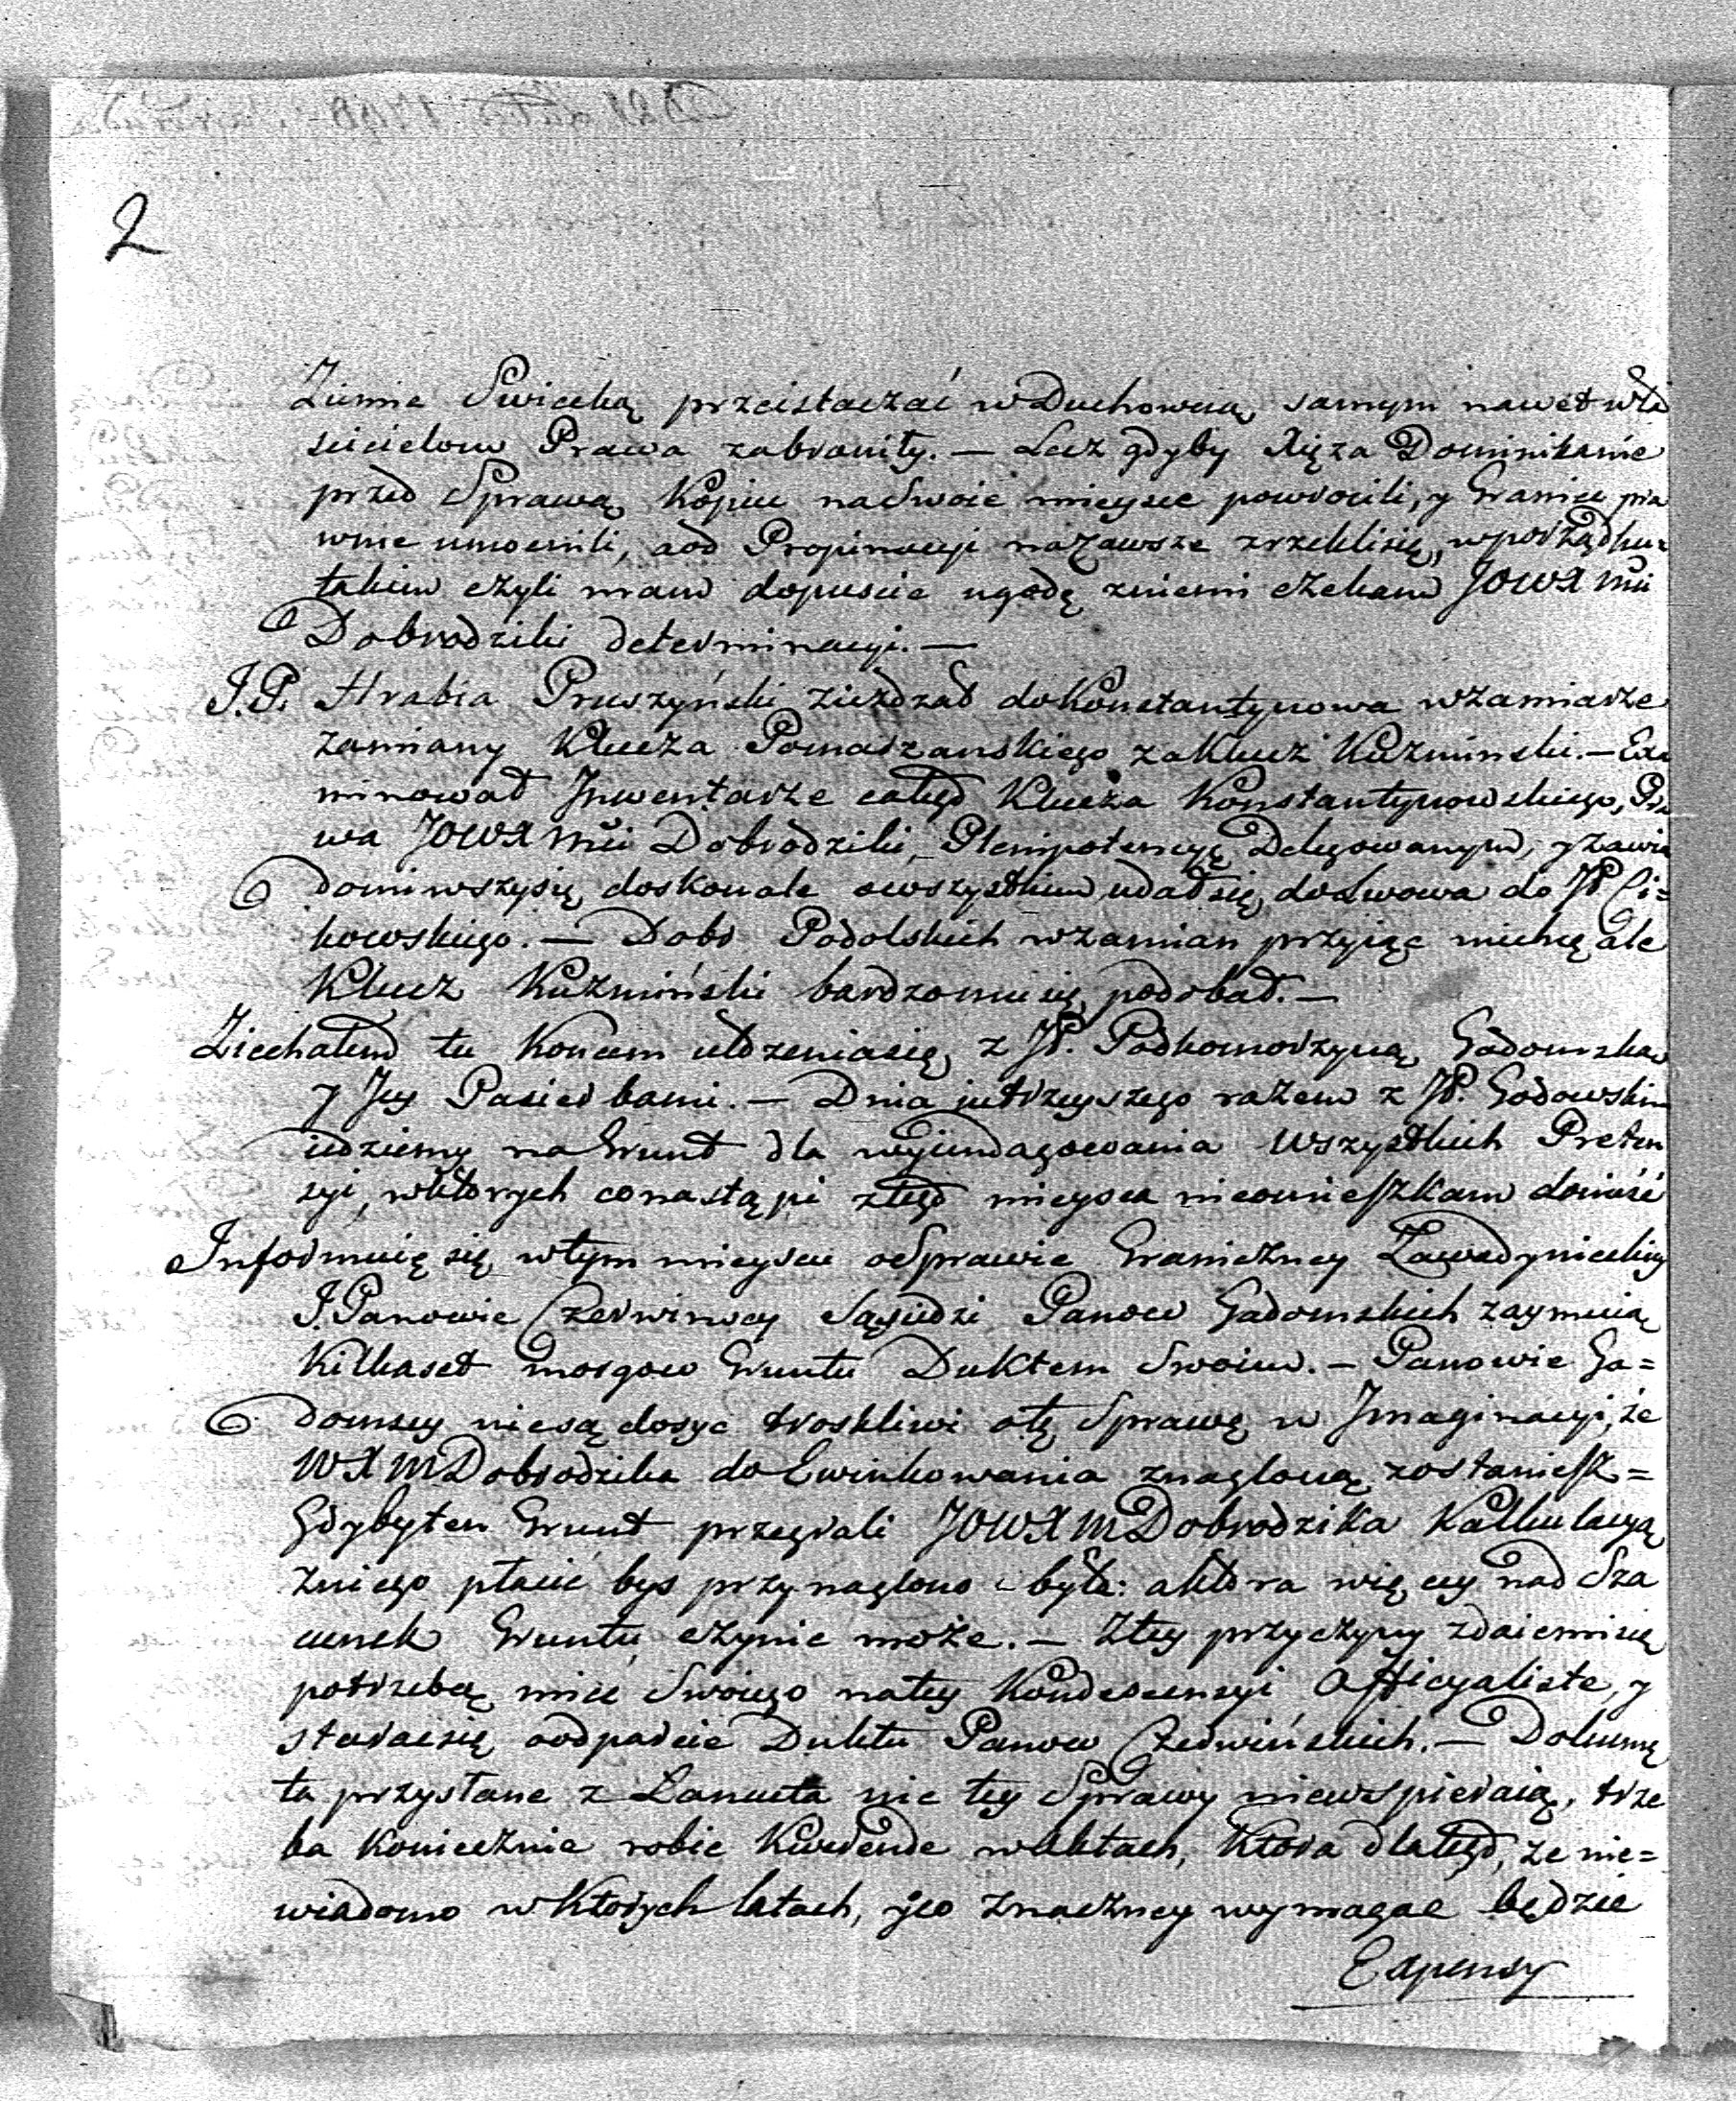 2
Ziemie Swiecką przeistaczać w Duchowną samym nawet wła
scicielow Prawa zabroniły. — Lecz gdyby Xięża Dominikanie
przed Sprawą Kopiec na Swoie mieysce powrocili, y Granice pra
wnie umocnili, a od Propinacyi na Zawsze zrzeklisię, wporządku
takim czyli mam dopuscic ugodę zniemi czekam JOWX Mći
Dobrodziki determinacyi. —
J.P. Hrabia Pruszyński ziezdzał do Konstantynowa wzamiarze
zamiany Klucza Pomarzanskiego za Klucz Kuzminski. — Exa
minował Jnwentarze całego Klucza Konstantynowskiego, Pra
wa JOWX Mći Dobrodziki, Plenipotencyę Delegowanym, y zawia
domiwszysię doskonale owszystkim udał się do Lwowa do JP Ci=
kowskiego. — Dobr Podolskich wzamian przyiąc niechcę ale
Klucz Kuzmiński bardzomusię podobał. —
Ziechałem tu Koncem ułozeniasię z JP. Podkomorzyną Gadomską
y Jey Pasierbami. — Dnia jutrzeyszego razem z JP. Godowskim
idziemy na Grunt dla wyindagowania wszystkich Preten
syi, wktorych co nastąpi ztego mieysca nieomieszkam doniesć
Informuię się wtym mieyscu o Sprawie Graniczney Zawadynieckiey
J.Panowie Czerwinscy Sąsiedzi Panow Gadomskich zaymuią
Kilkaset morgow Gruntu Duktem Swoim. — Panowie Ga=
domscy niesą dosyc troskliwi otę Sprawę w Jmaginacyi, że
WXMDobrodzika do Ewinkowania znagloną zostaniesz=
Gdybyten Grunt przegrali JOWXMDobrodzika Kalkulacyą
zniego płacić bys przynaglono była: aktora więcey nad Sza
cunek Gruntu czynic może. — Ztey przyczyny zdaiemisię
potrzebą miec Swoiego natey Kondescensyi Officyaliste, y
staracsię oodparcie Duktu Panow Czerwińskich. — Dokumę
ta przysłane z Łancuta nic tey Sprawy niewspieraią, trze
ba Koniecznie robic Kwerende wAktach, Ktora dlatego, ze nie=
wiadomo w Ktorych latach, yco znaczney wymagac będzie
Expensy